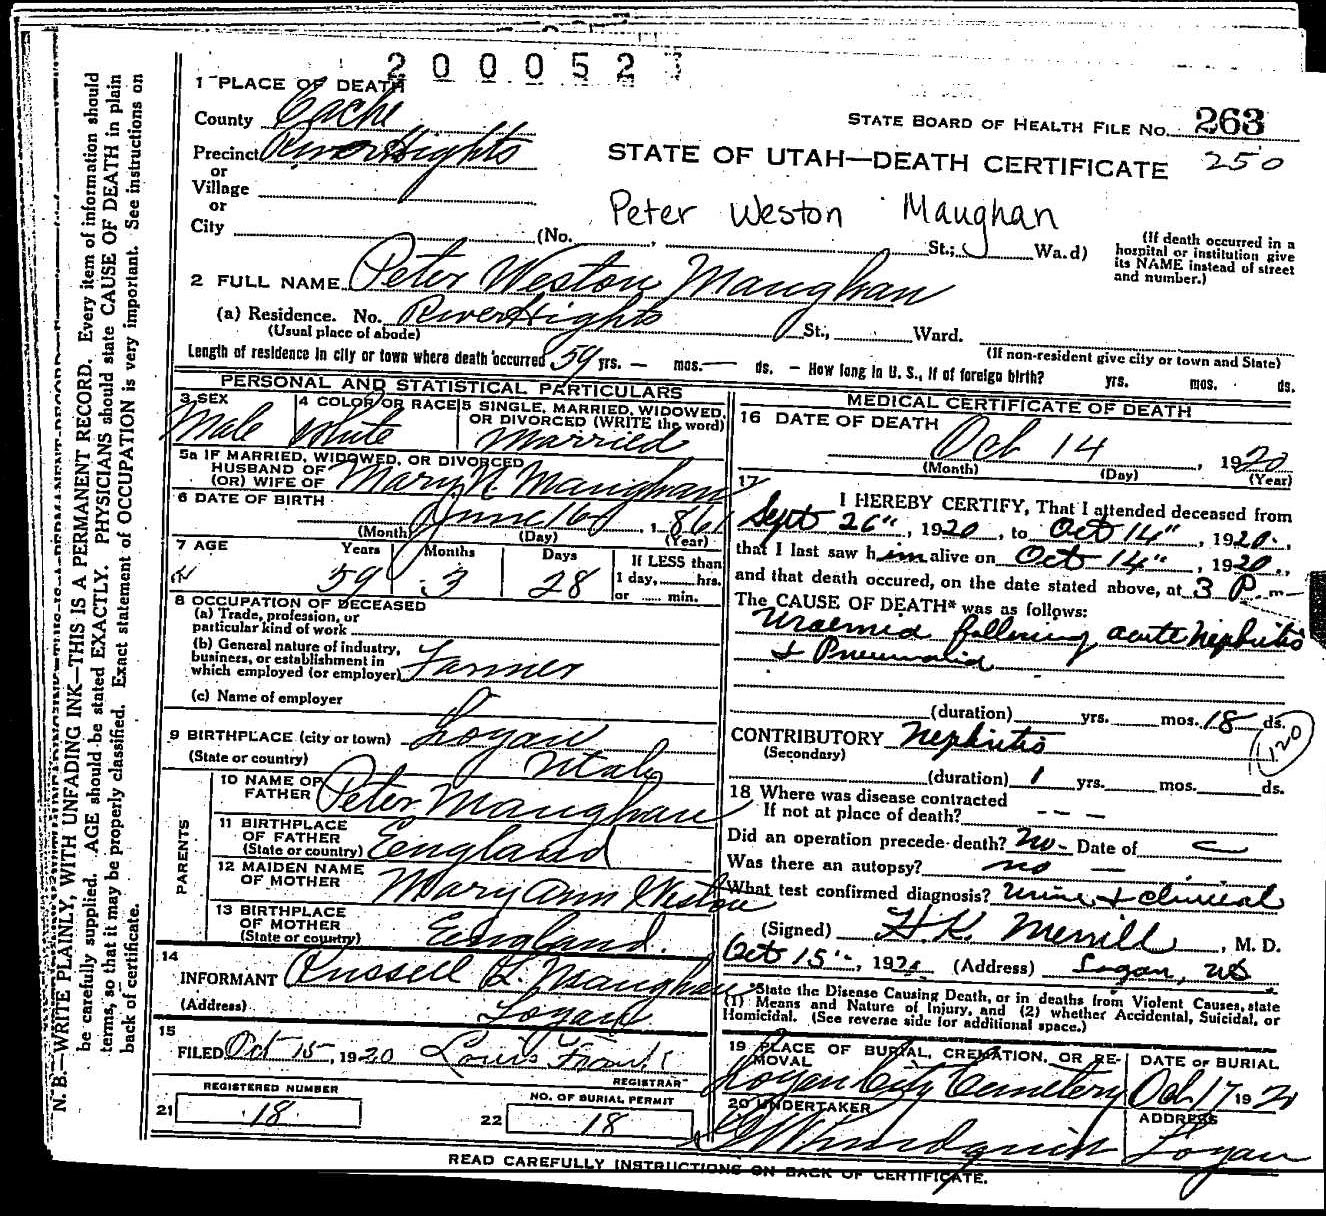 2 0 0 0 5 2
1 PLACE OF DEATH
County Cache
STATE BOARD OF HEALTH FILE No. 263
Precinct River Hights
STATE OF UTAH—DEATH CERTIFICATE 250
or
Village
or
Peter Weston Maughan
City (No. , St.; Wa.d)
(If death occurred in a
hospital or institution give
its NAME instead of street
and number.)
2 FULL NAME Peter Weston Maughan
(a) Residence. No. River Hights St., Ward.
(Usual place of abode)
(If non-resident give city or town and State)
Length of residence in city or town where death occurred 59 yrs. — mos. — ds. — How long in U. S., if of foreign birth? yrs. mos. ds.
PERSONAL AND STATISTICAL PARTICULARS
3 SEX
Male
4 COLOR OR RACE
White
5 SINGLE, MARRIED, WIDOWED,
OR DIVORCED (WRITE the word)
Married
5a IF MARRIED, WIDOWED, OR DIVORCED
HUSBAND OF
(OR) WIFE OF Mary N Maughan
6 DATE OF BIRTH
June 16 1861
(Month) (Day) (Year)
7 AGE Years Months Days
59 3 28
If LESS than
1 day, hrs.
or min.
8 OCCUPATION OF DECEASED
(a) Trade, profession, or
particular kind of work
(b) General nature of industry,
business, or establishment in
which employed (or employer) Farmer
(c) Name of employer
9 BIRTHPLACE (city or town) Logan
(State or country) Utah
PARENTS
10 NAME OF
FATHER Peter Maughan
11 BIRTHPLACE
OF FATHER
(State or country) England
12 MAIDEN NAME
OF MOTHER Mary Ann Weston
13 BIRTHPLACE
OF MOTHER
(State or country) England.
14
INFORMANT Russell L. Maughan
(Address) Logan
15
FILED Oct 15, 1920 Louis
REGISTRAR
REGISTERED NUMBER
21 18
NO. OF BURIAL PERMIT
22 18
MEDICAL CERTIFICATE OF DEATH
16 DATE OF DEATH
Oct 14, 1920
(Month) (Day) (Year)
17
I HEREBY CERTIFY, That I attended deceased from
Sept 26", 1920, to Oct 14", 1920.,
that I last saw him alive on Oct 14", 1920.,
and that death occured, on the date stated above, at 3 P. m—
The CAUSE OF DEATH* was as follows:
Uraemia following acute Nephritis
+ Pneumonia
(duration) yrs. mos. 18 ds.
CONTRIBUTORY Nephritis
(Secondary)
120
(duration) 1 yrs. mos. ds.
18 Where was disease contracted
If not at place of death? - - -
Did an operation precede death? No - Date of
Was there an autopsy? no —
What test confirmed diagnosis? Urine + clinical
(Signed) H.K. Merrill, M. D.
Oct 15", 192 (Address) Logan, Ut
*State the Disease Causing Death, or in deaths from Violent Causes, state
(1) Means and Nature of Injury, and (2) whether Accidental, Suicidal, or
Homicidal. (See reverse side for additional space.)
19 PLACE OF BURIAL, CREMATION, OR RE-
MOVAL
Logan City Cemetery
DATE OF BURIAL
Oct. 17 1920
20 UNDERTAKER
ADDRESS
Logan
READ CAREFULLY INSTRUCTIONS ON BACK OF CERTIFICATE.
N. B.—WRITE PLAINLY, WITH UNFADING INK—THIS IS A PERMANENT RECORD. Every item of information should
be carefully supplied. AGE should be stated EXACTLY. PHYSICIANS should state CAUSE OF DEATH in plain
terms, so that it may be properly classified. Exact statement of OCCUPATION is very important. See instructions on
back of certificate.